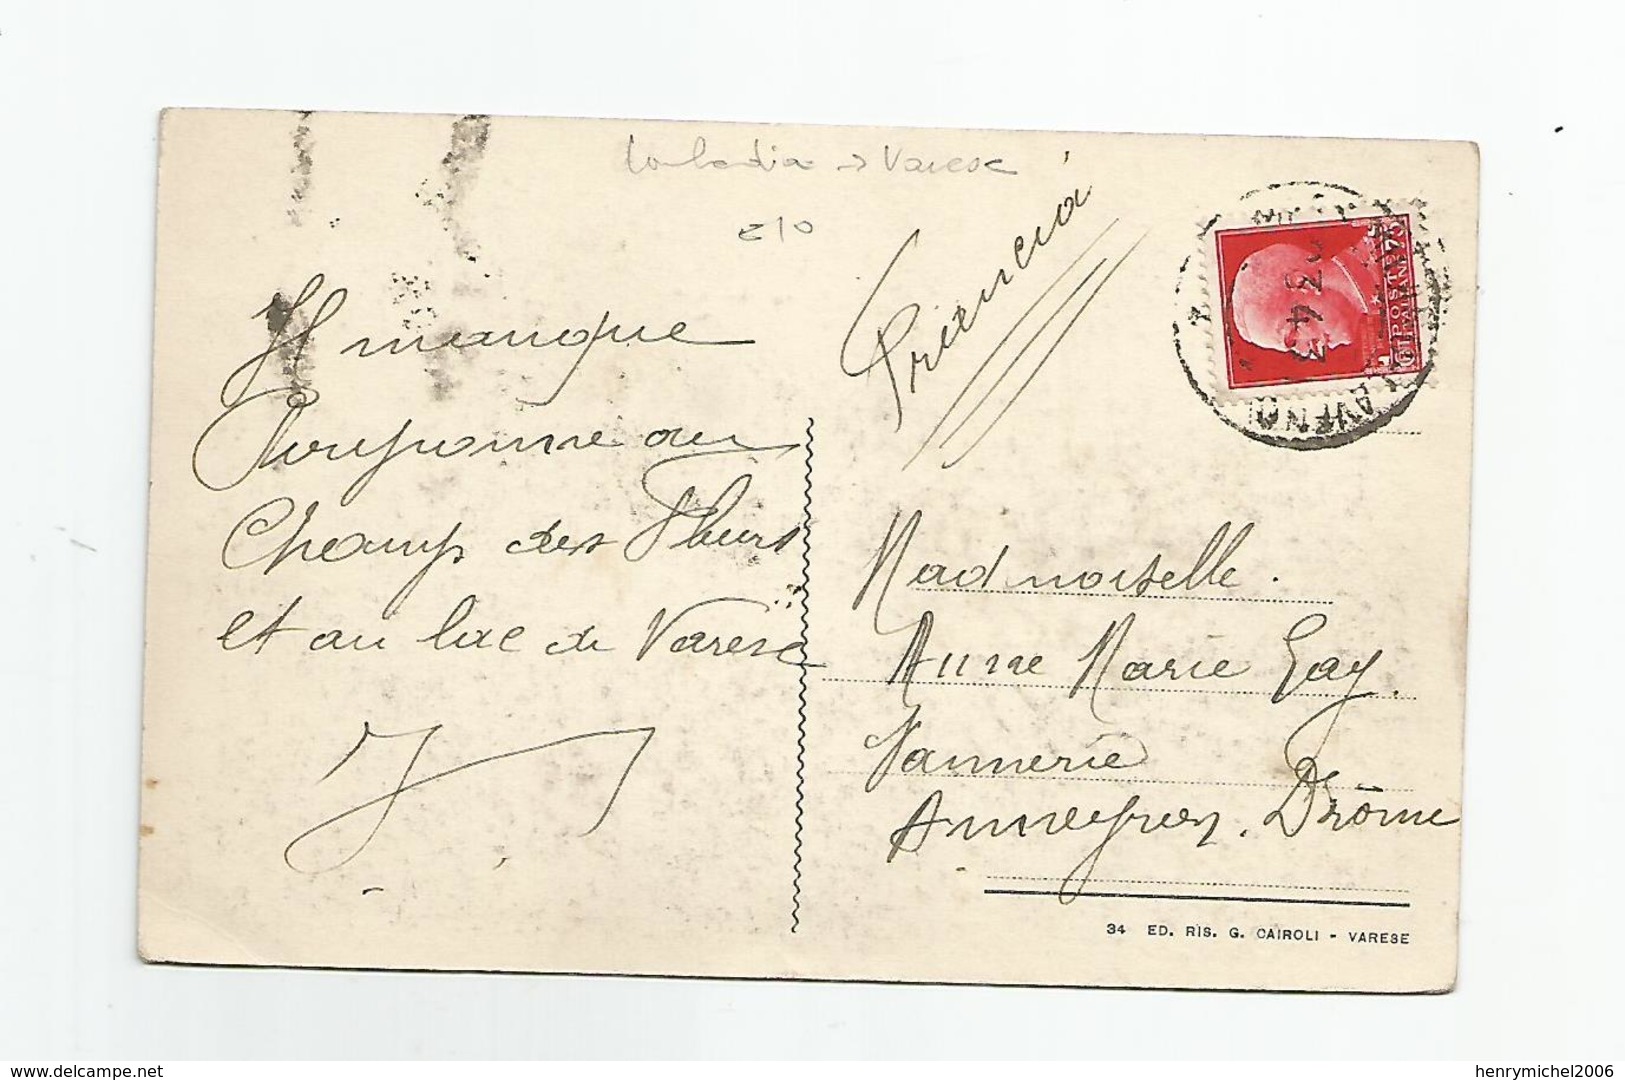 Lombardia → Varese
Francia
Il manque
au
Champ des Fleurs
et au lac de Varese
POSTE
75
ITALIANE
LAVENO
Mademoiselle.
Anne Marie Gay.
Vannerie
Anneyron. Drôme
34 ED. RIS. G. CAIROLI - VARESE
delcampe.net
henrymichel2006